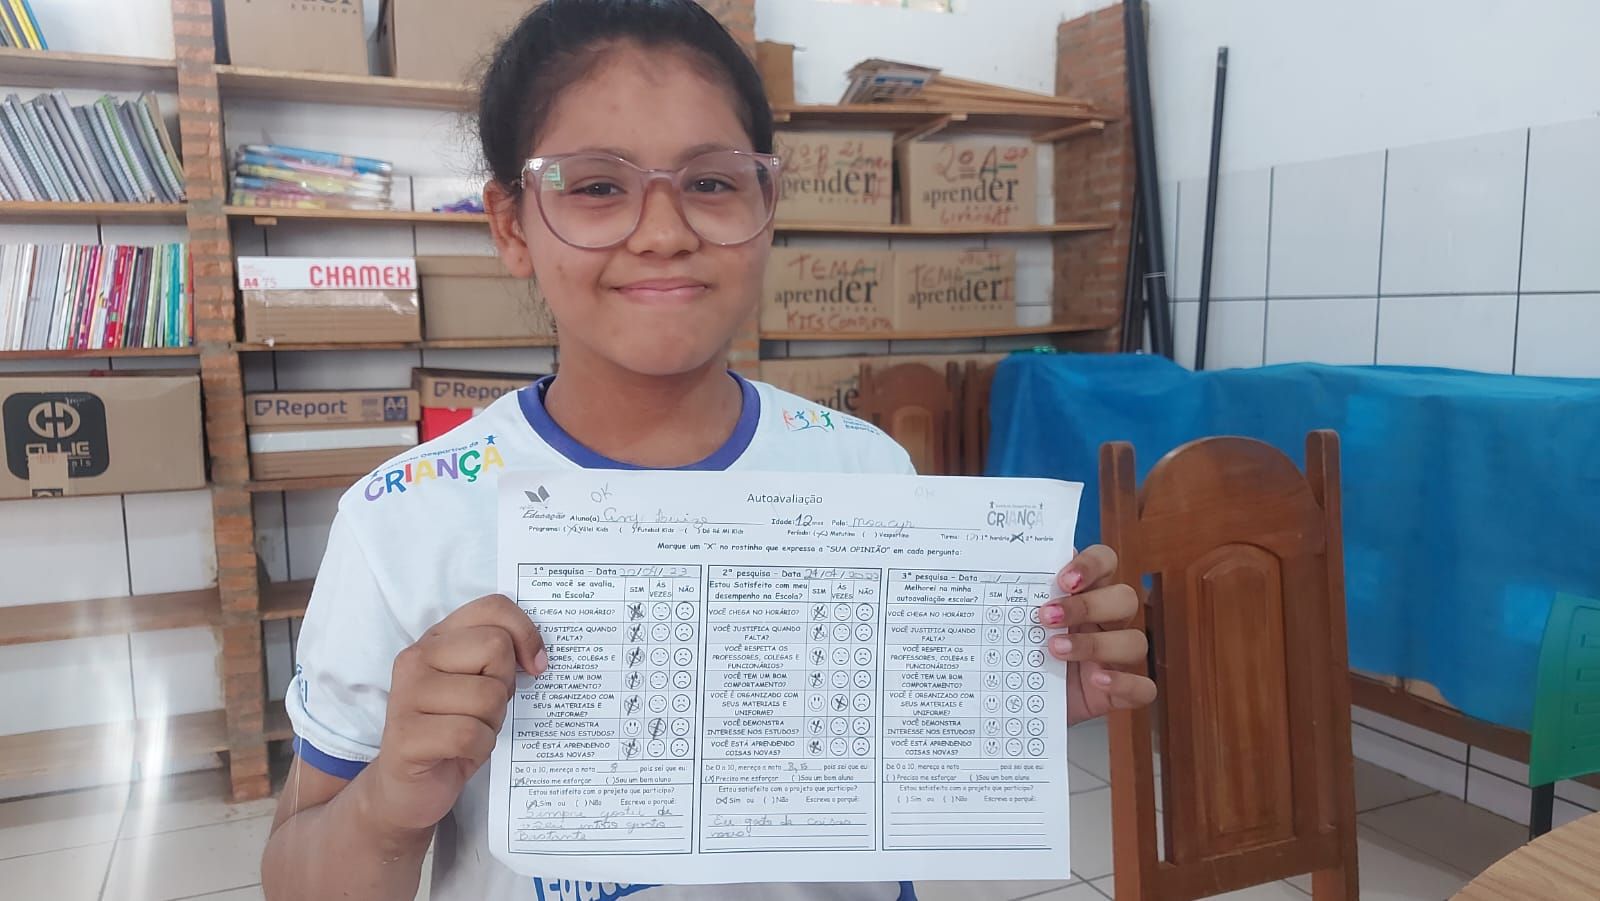 aprender
EDITORA
2º A
aprender
aprender
CHAMEX
A4 75
TEMA
aprender
EDITORA
KITS COMPLETA
TEMA
aprender
EDITORA
Report
A4
Report
OLLIE
Instituto Desportivo da
CRIANÇA
OK
Autoavaliação
Educação
CRIANÇA
Aluno(a) Any Luize Idade: 12 anos Polo: Moacyr
Programa: (X) Vôlei Kids ( ) Futebol Kids ( ) Dó Ré Mi Kids Período: (X) Matutino ( ) Vespertino Turma: ( ) 1º horário (X) 2º horário
Marque um "X" no rostinho que expressa a "SUA OPINIÃO" em cada pergunta:
1ª pesquisa - Data 20/04/23
Como você se avalia, na Escola?
SIM ÀS VEZES NÃO
VOCÊ CHEGA NO HORÁRIO?
VOCÊ JUSTIFICA QUANDO
FALTA?
VOCÊ RESPEITA OS
FUNCIONÁRIOS?
VOCÊ TEM UM BOM
COMPORTAMENTO?
VOCÊ É ORGANIZADO COM
SEUS MATERIAIS E
UNIFORME?
VOCÊ DEMONSTRA
INTERESSE NOS ESTUDOS?
VOCÊ ESTÁ APRENDENDO
COISAS NOVAS?
De 0 a 10, mereço a nota 8 pois sei que eu:
(X) Preciso me esforçar ( ) Sou um bom aluno
Estou satisfeito com o projeto que participo?
(X) Sim ou ( ) Não Escreva o porquê:
Sempre gostei de
vôlei então gosto
Bastante
2ª pesquisa - Data
Estou Satisfeito com meu
desempenho na Escola?
SIM ÀS VEZES NÃO
VOCÊ CHEGA NO HORÁRIO?
VOCÊ JUSTIFICA QUANDO
FALTA?
VOCÊ RESPEITA OS
PROFESSORES, COLEGAS E
FUNCIONÁRIOS?
VOCÊ TEM UM BOM
COMPORTAMENTO?
VOCÊ É ORGANIZADO COM
SEUS MATERIAIS E
UNIFORME?
VOCÊ DEMONSTRA
INTERESSE NOS ESTUDOS?
VOCÊ ESTÁ APRENDENDO
COISAS NOVAS?
De 0 a 10, mereço a nota 8,5 pois sei que eu:
(X) Preciso me esforçar ( ) Sou um bom aluno
Estou satisfeito com o projeto que participo?
(X) Sim ou ( ) Não Escreva o porquê:
Eu gosto de coisas
novas!
3ª pesquisa - Data __/__/__
Melhorei na minha
autoavaliação escolar?
SIM ÀS VEZES NÃO
VOCÊ CHEGA NO HORÁRIO?
VOCÊ JUSTIFICA QUANDO
FALTA?
VOCÊ RESPEITA OS
PROFESSORES, COLEGAS E
FUNCIONÁRIOS?
VOCÊ TEM UM BOM
COMPORTAMENTO?
VOCÊ É ORGANIZADO COM
SEUS MATERIAIS E
UNIFORME?
VOCÊ DEMONSTRA
INTERESSE NOS ESTUDOS?
VOCÊ ESTÁ APRENDENDO
COISAS NOVAS?
De 0 a 10, mereço a nota ______ pois sei que eu:
( ) Preciso me esforçar ( ) Sou um bom aluno
Estou satisfeito com o projeto que participo?
( ) Sim ou ( ) Não Escreva o porquê: